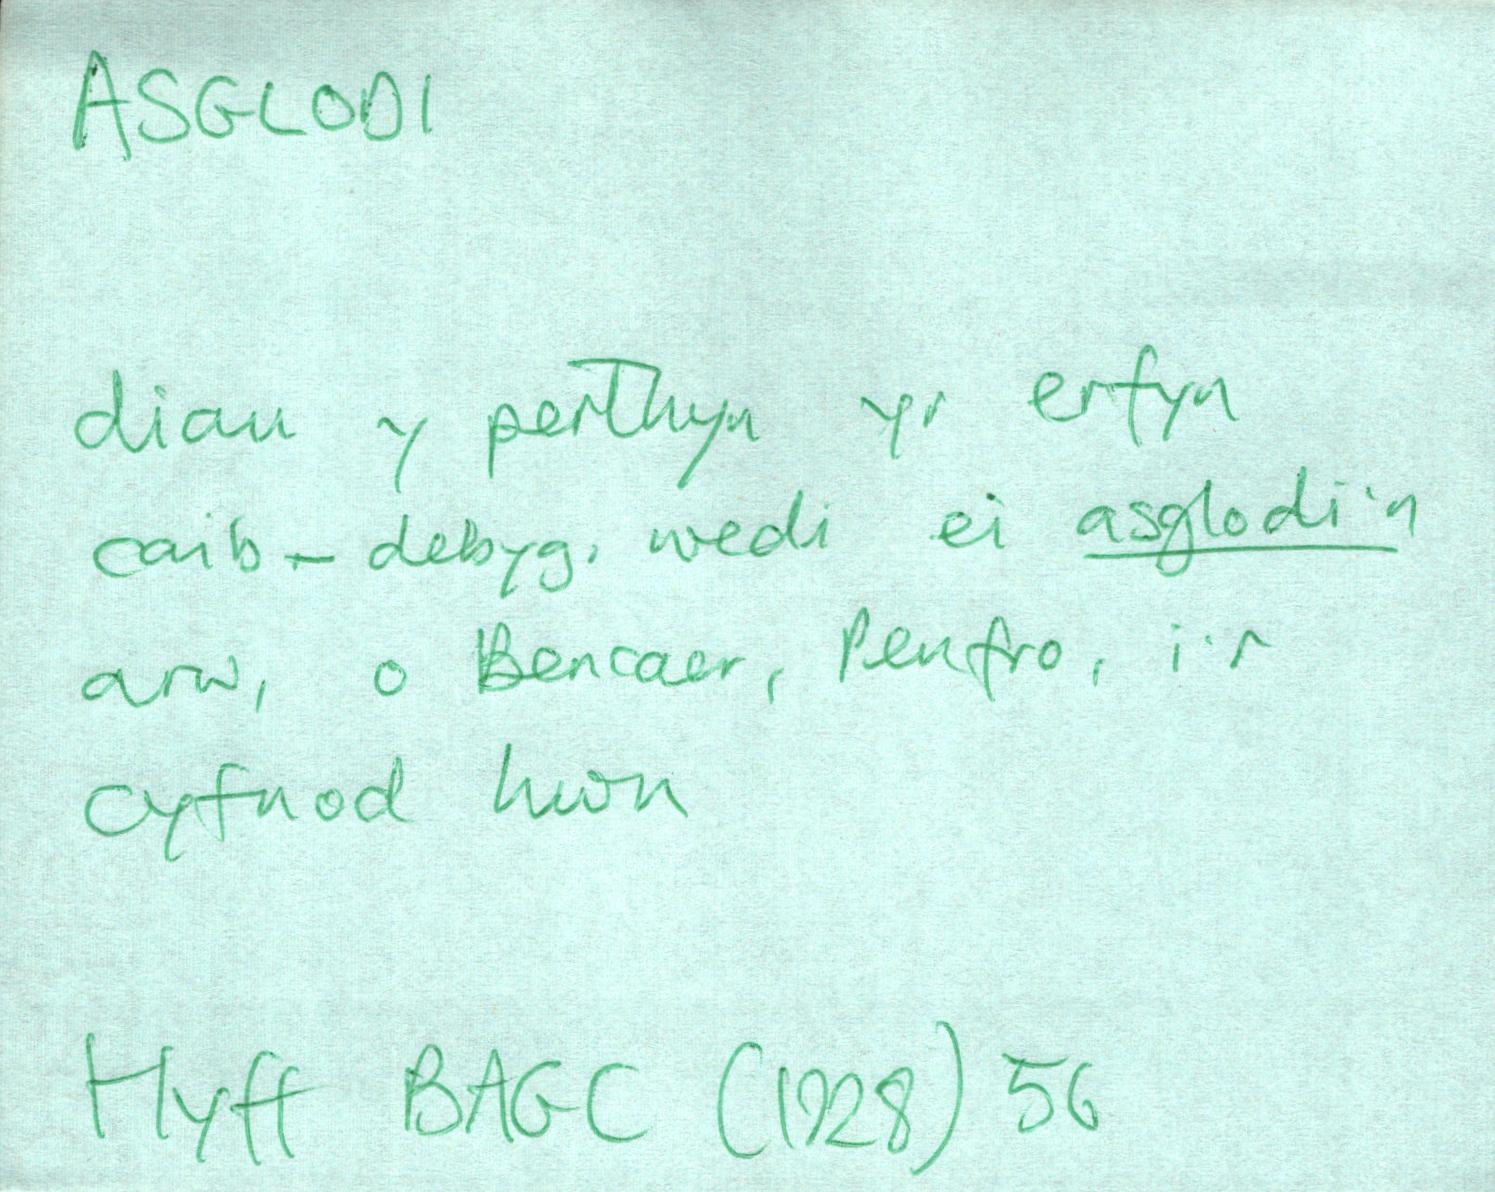 ASGLODI
diau y perthyn yr erfyn
caib-debyg, wedi ei asglodi'n
arw, o Bencaer, Penfro, i'r
cyfnod hwn
Hyff BAGC (1928) 56